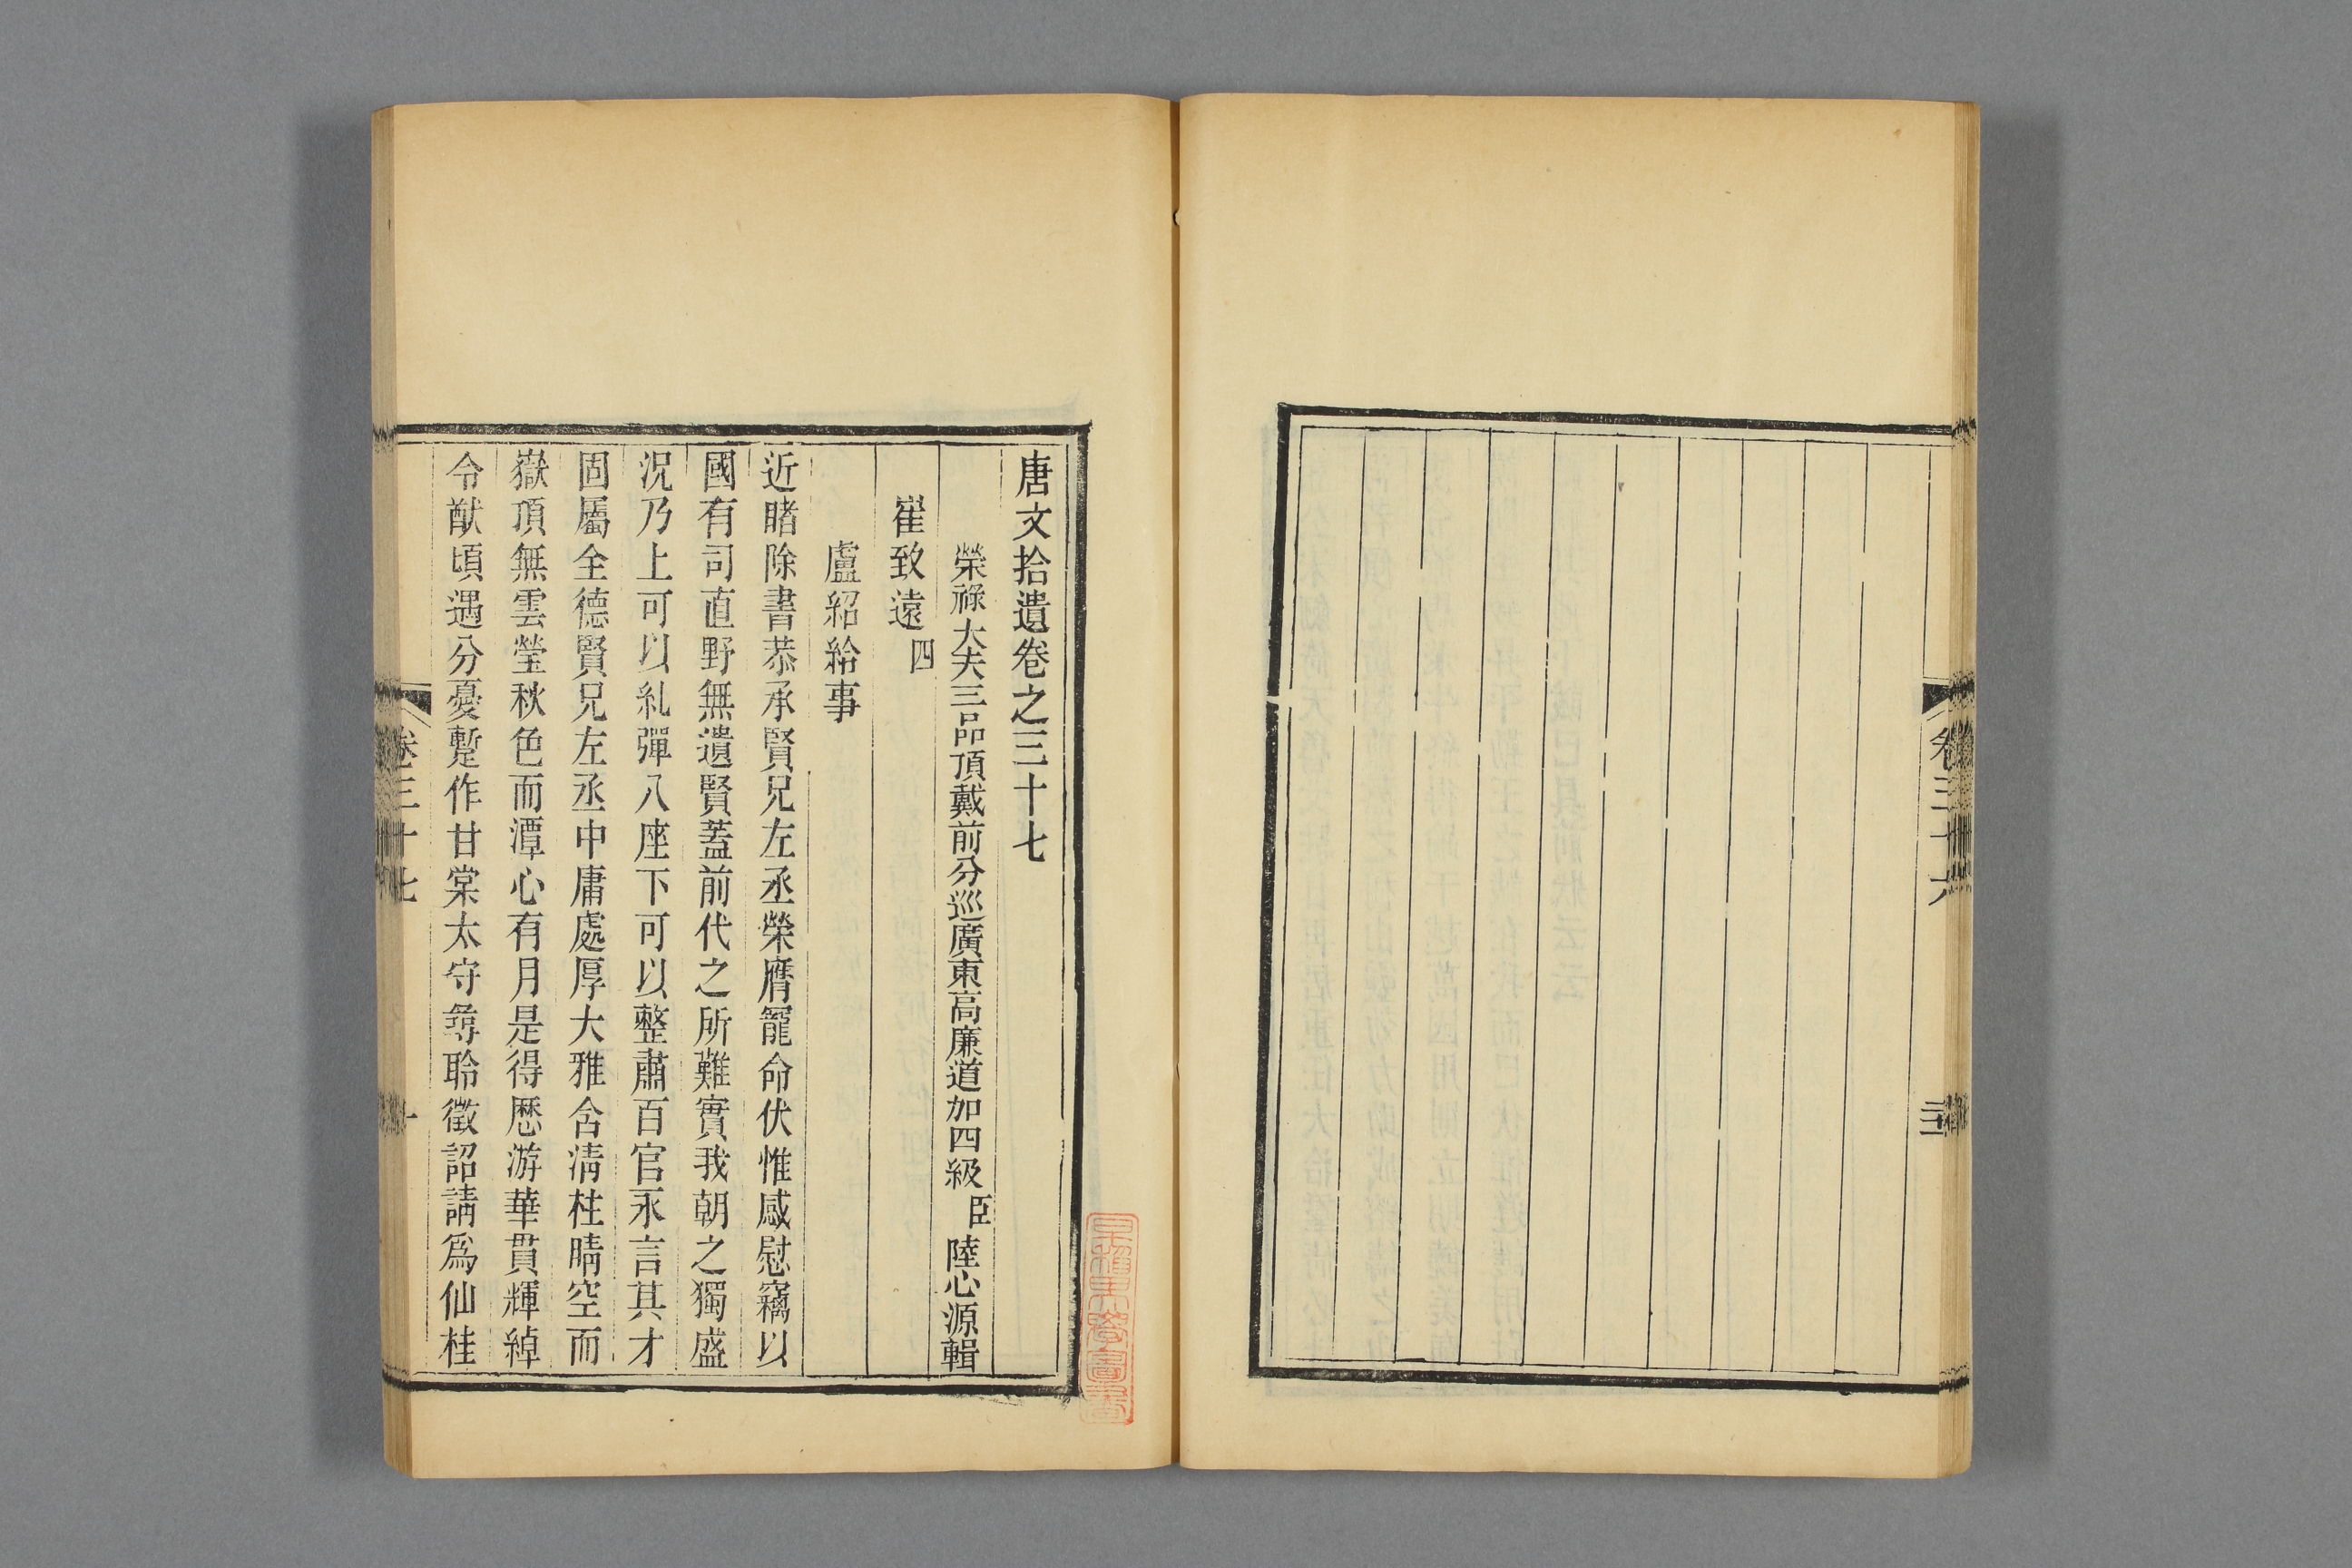 卷三十六
唐文拾遺卷之三十七
榮祿大夫三品頂戴前分巡廣東高廉道加四級臣陸心源輯
崔致遠四
盧紹給事
近睹除書恭承賢兄左丞榮膺寵命伏惟感慰竊以
國有司直野無遺賢蓋前代之所難實我朝之獨盛
況乃上可以糺彈八座下可以整肅百官永言其才
固屬全德賢兄左丞中庸處厚大雅含清柱晴空而
嶽頂無雲瑩秋色而潭心有月是得歷游華貫輝綽
令猷頃遇分憂暫作甘棠太守尋聆徵詔請爲仙桂
卷三十七